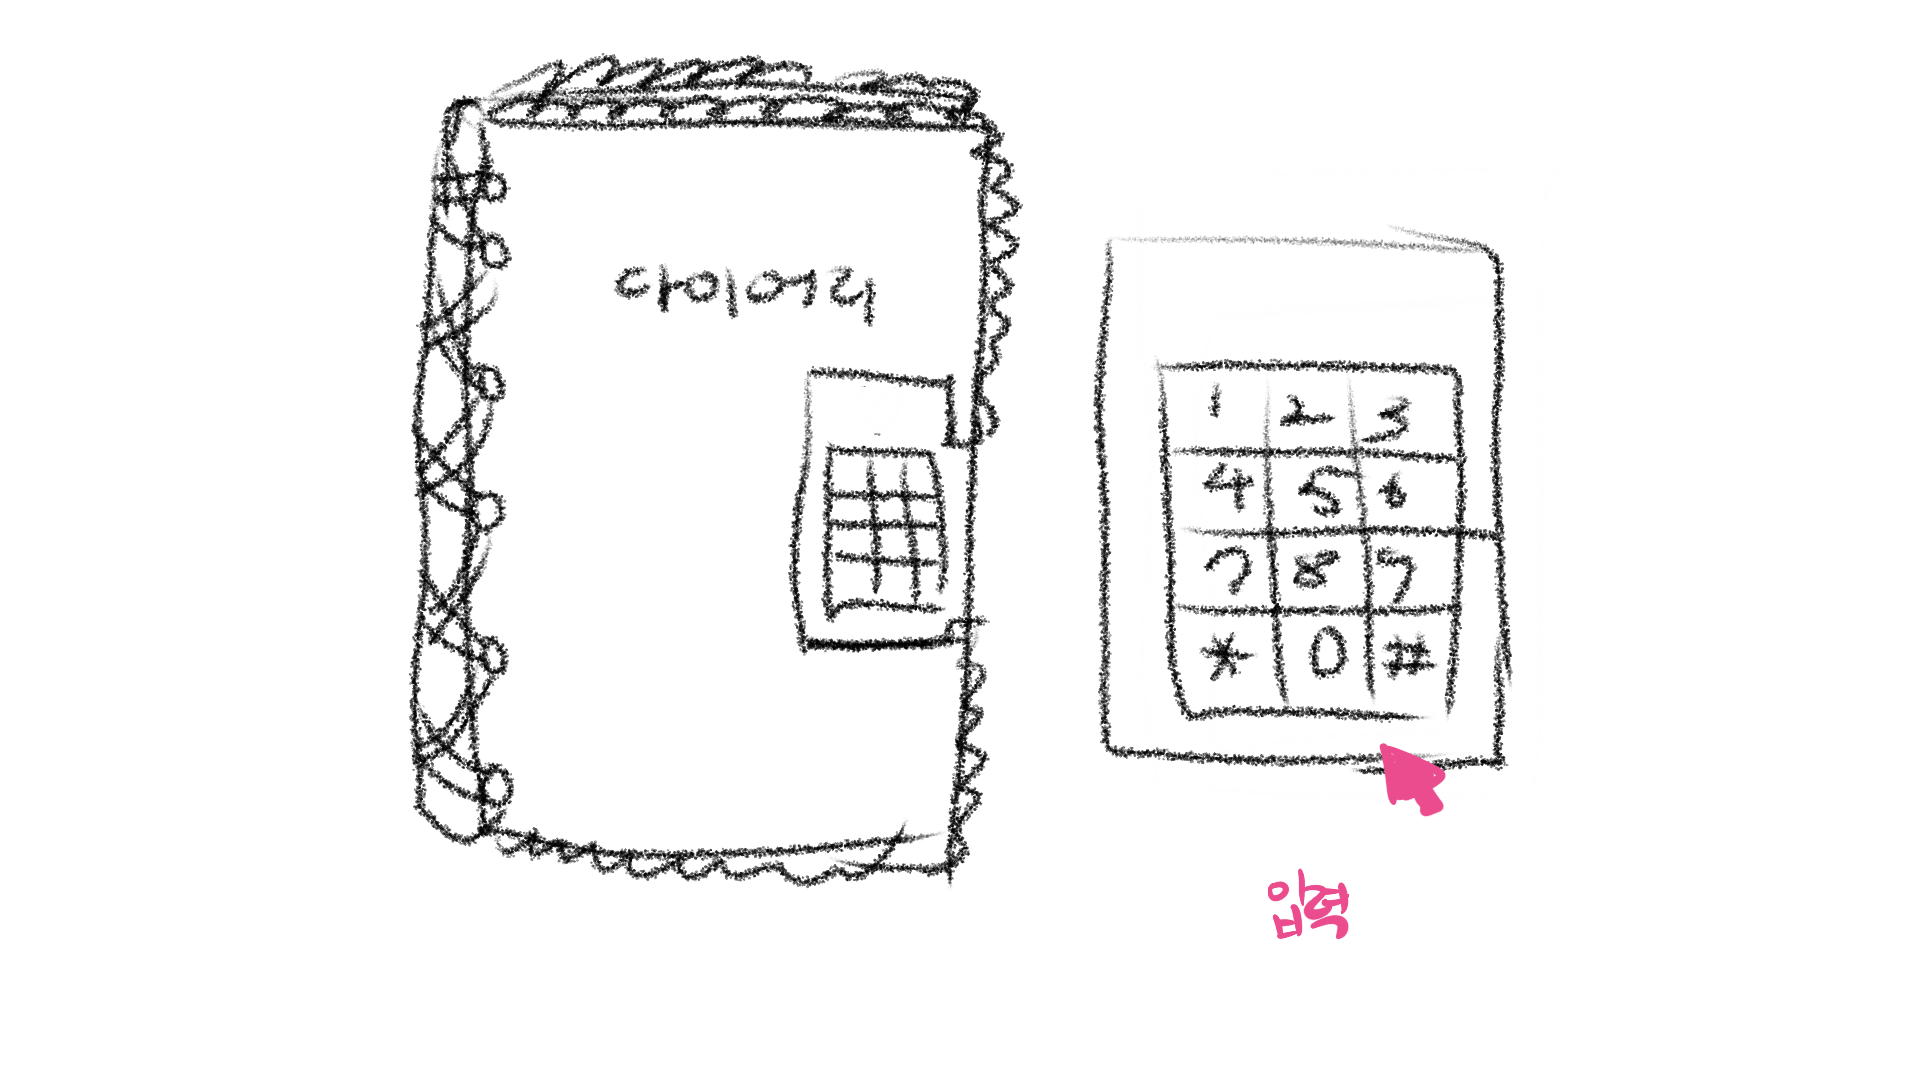 다이어리
1 2 3
4 5 6
7 8 9
* 0 #
입력